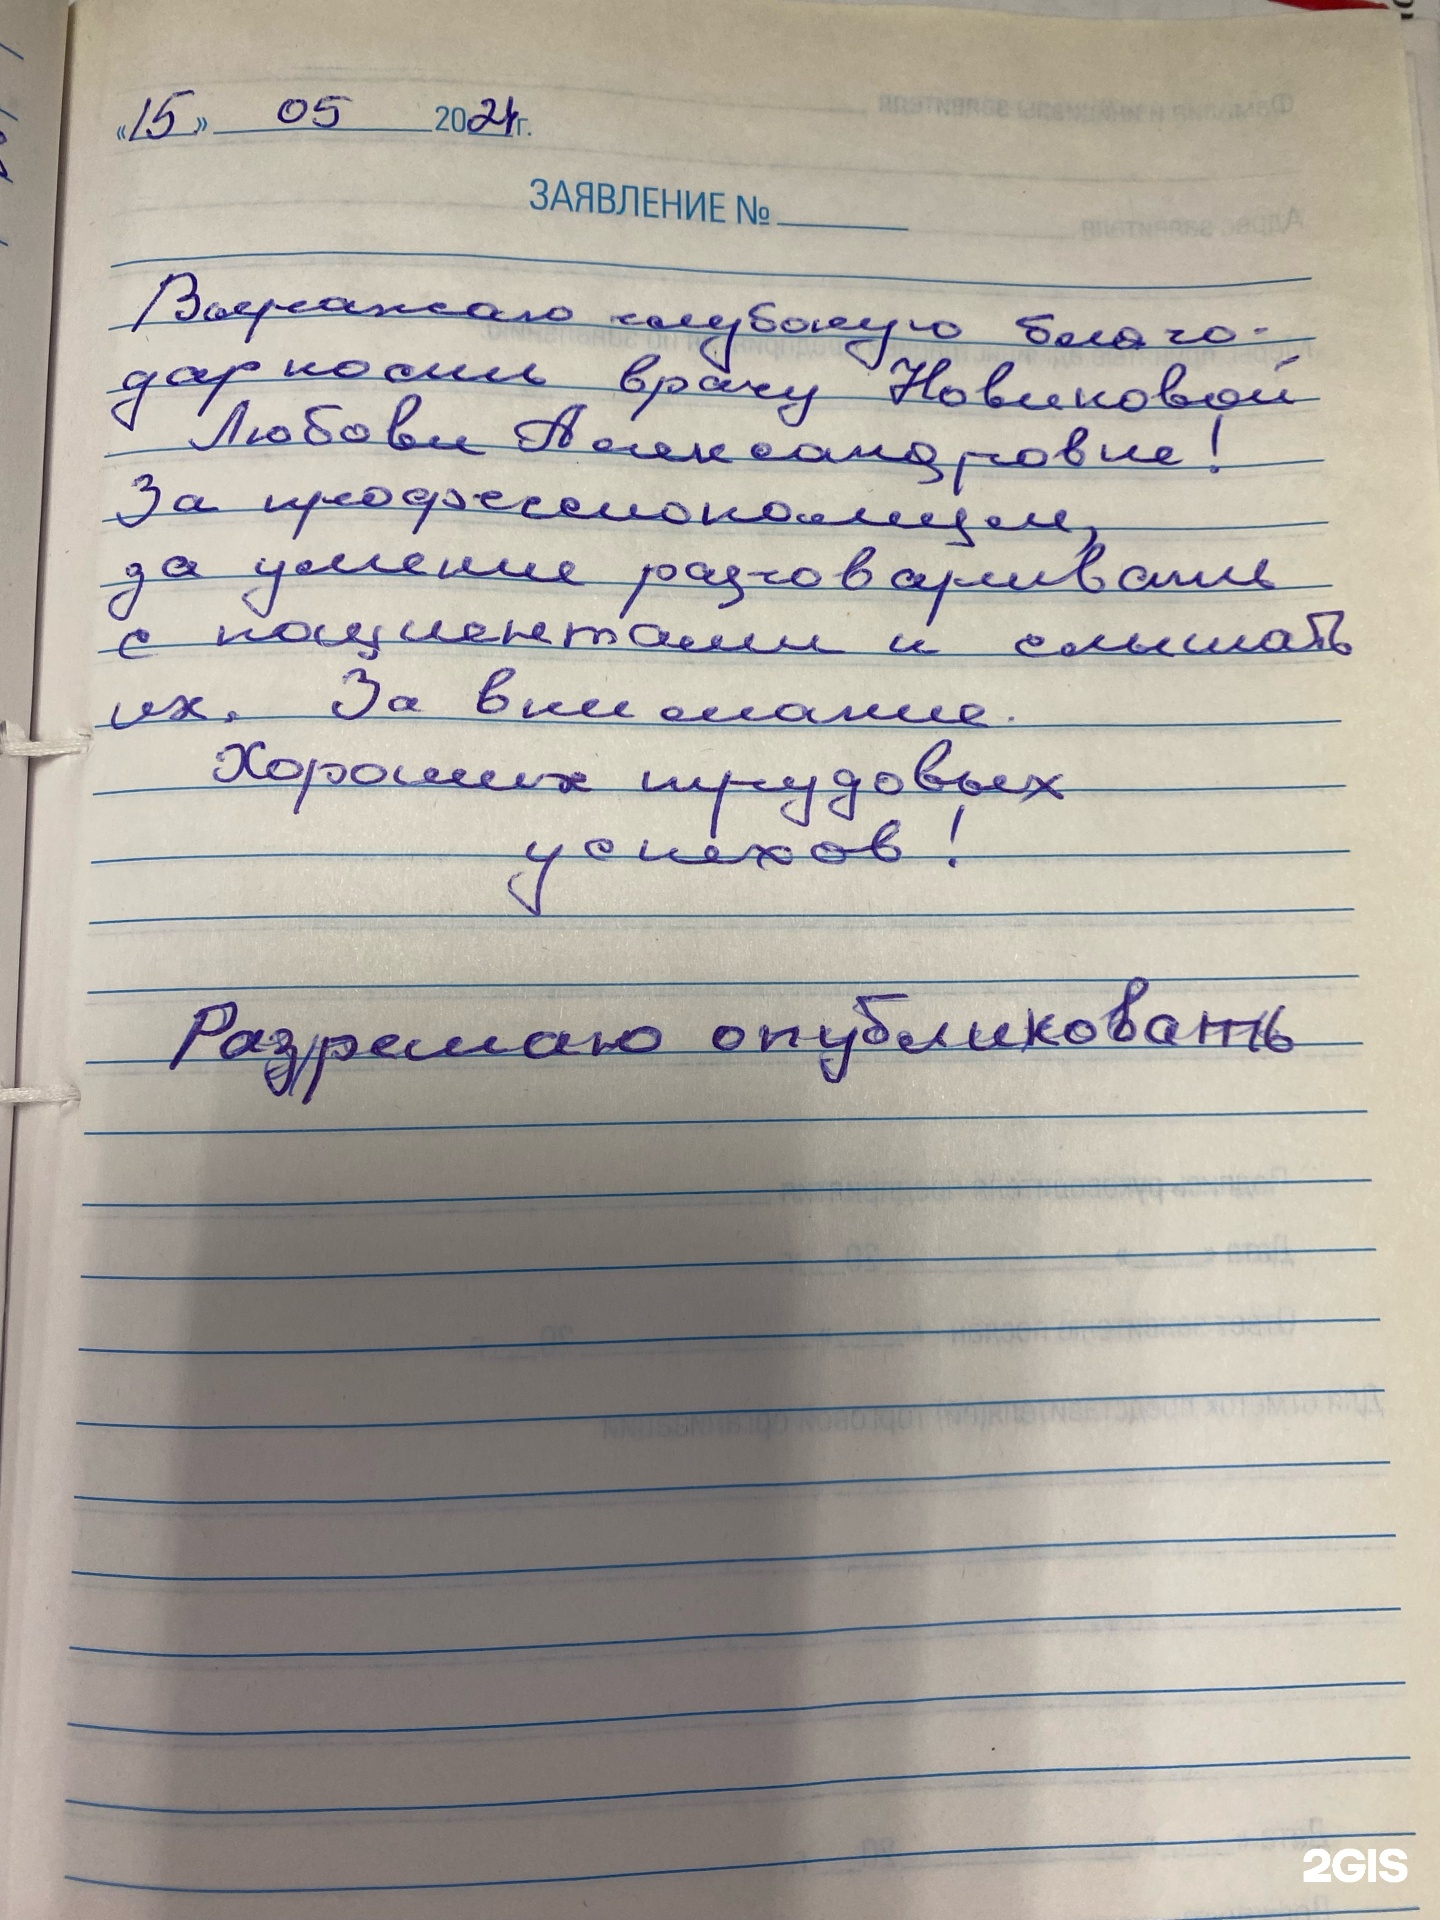 «15» 05 2024г.
ЗАЯВЛЕНИЕ №
Выражаю глубокую благо-
дарность врачу Новиковой
Любови Александровне!
За профессионализм,
за умение разговаривать
с пациентами и слышать
их. За внимание.
Хороших трудовых
успехов!
Разрешаю опубликовать
2GIS